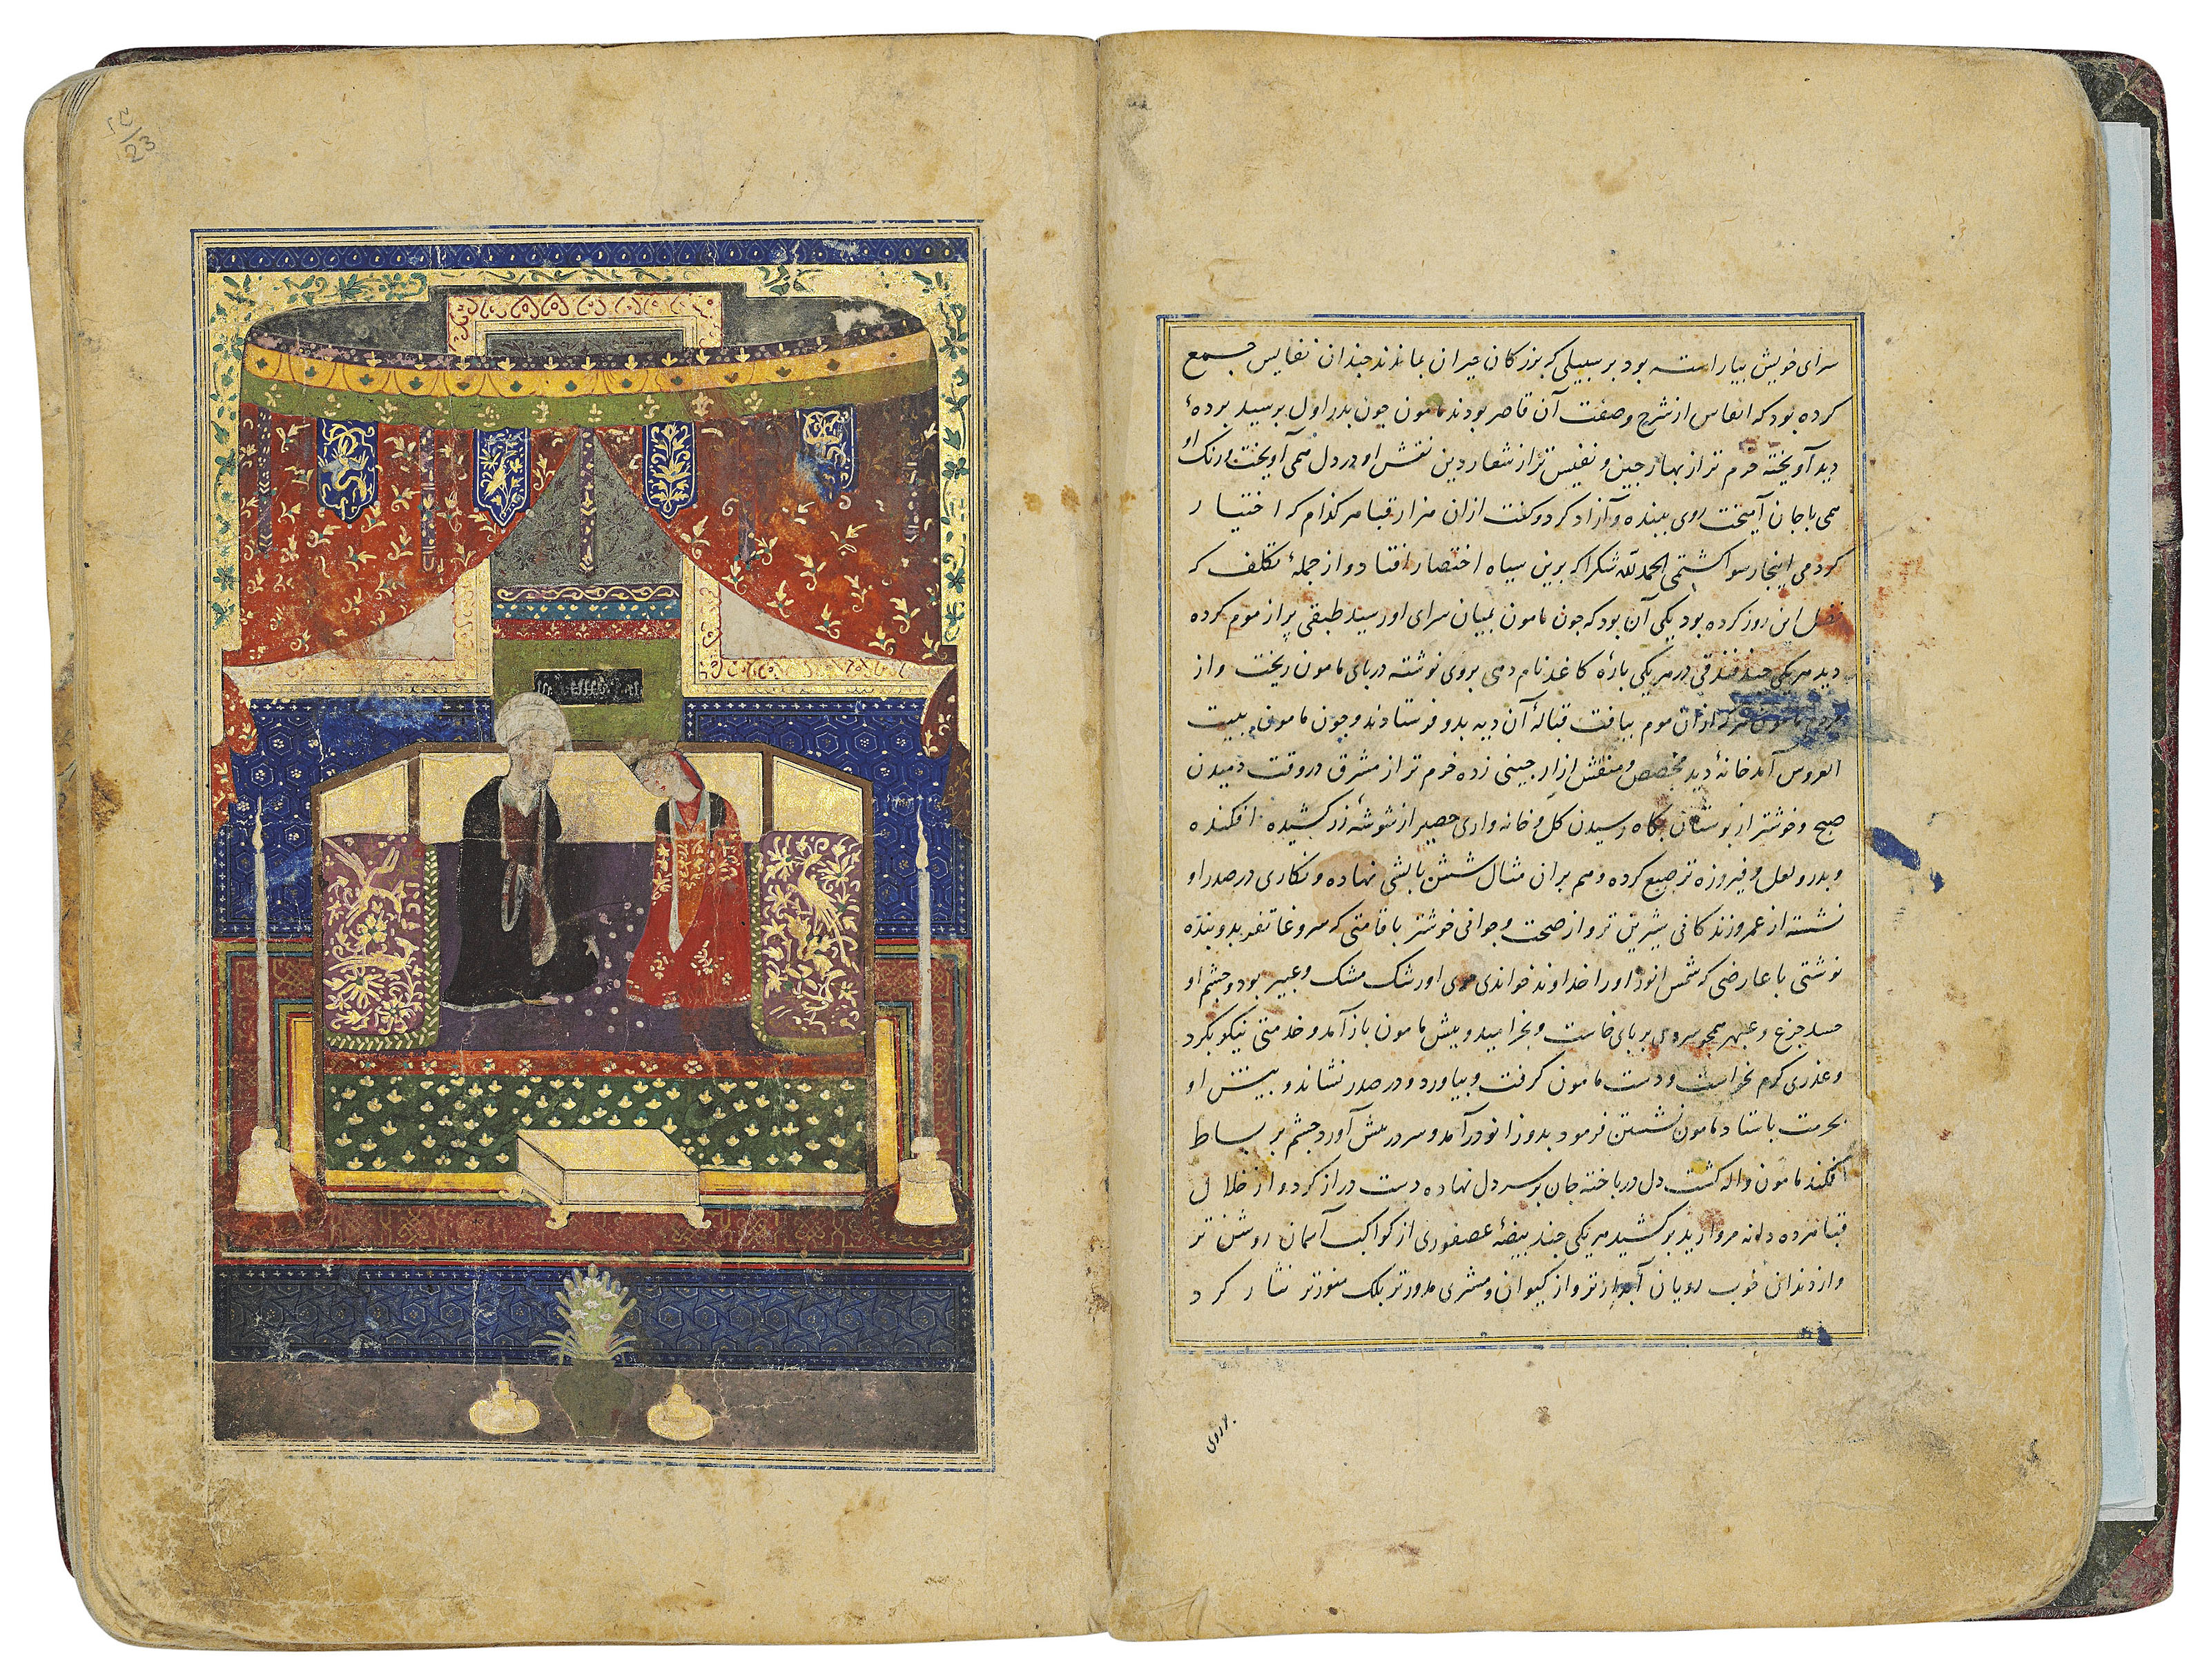 سرای خویش بیاراسته بود بر سبیلی که بزرکان حیران بماندند چندان نفایس جمع
کرده بود که انفاس از شرح وصفت آن قاصر بودند مامون چون بدر اول برسید بردهٔ
دید آویخته خرم تر از بهار چین و نفیس تر از شعار دین نقش او در دل همی آویخت و رنک او
همی با جان آمیخت روی ببنده و آزاد کرد و کفت ازان هزار قبا هر کدام که اختیار
کردمی اینجا رسوا کشتمی الحمد لله شکرا که برین سیاه اختصار افتاد و از جملهٔ تکلف که
فضل این روز کرده بود یکی آن بود که چون مامون بمیان سرای او رسید طبقی پر از موم کرده
دید هر یکی چند فندقی در هر یکی بارهٔ کاغذ نام دهی بروی نوشته در بای مامون ریخت و از
مردم مامون هرکه ازان موم بیافت قبالهٔ آن دیه بدو فرستادند و چون مامون ببیت
العروس آمد خانهٔ دید مجصص و منقش ازار چینی زده خرم تر از مشرق در وقت دمیدن
صبح و خوشتر از بوستان بکاه رسیدن کل و خانه واری حصیر از شوشهٔ زر کشیده افکنده
و بدر و لعل و فیروزه ترصیع کرده و هم بران مثال شش بالشی نهاده و نکاری در صدر او
نشسته از عمر و زندکانی شیرین تر و از صحت و جوانی خوشتر با قامتی که سرو غاتفر بدو بنده
نوشتی با عارضی که شمس انور او را خداوند خواندی موی او رشک مشک و عبیر بود و چشم او
حسد جزع و عبهر همچو سروی بر بای خاست و بخرامید و بیش مامون باز آمد و خدمتی نیکو بکرد
و عذری کرم بخواست و دست مامون کرفت و بیاورد و در صدر نشاند و بیش او
بحرمت باستاد مامون نشستن فرمود بدو زانو درآمد و سر در بیش آورد و چشم بر بساط
افکند مامون واله کشت دل در باخته جان بر سر دل نهاده دست دراز کرد و از خلال
قبا هژده دانه مروارید بر کشید هر یکی چند بیضهٔ عصفوری از کواکب آسمان روشن تر
و از دندان خوب رویان آبدارتر و از کیوان و مشتری مدورتر بلک منورتر نثار کرد
23